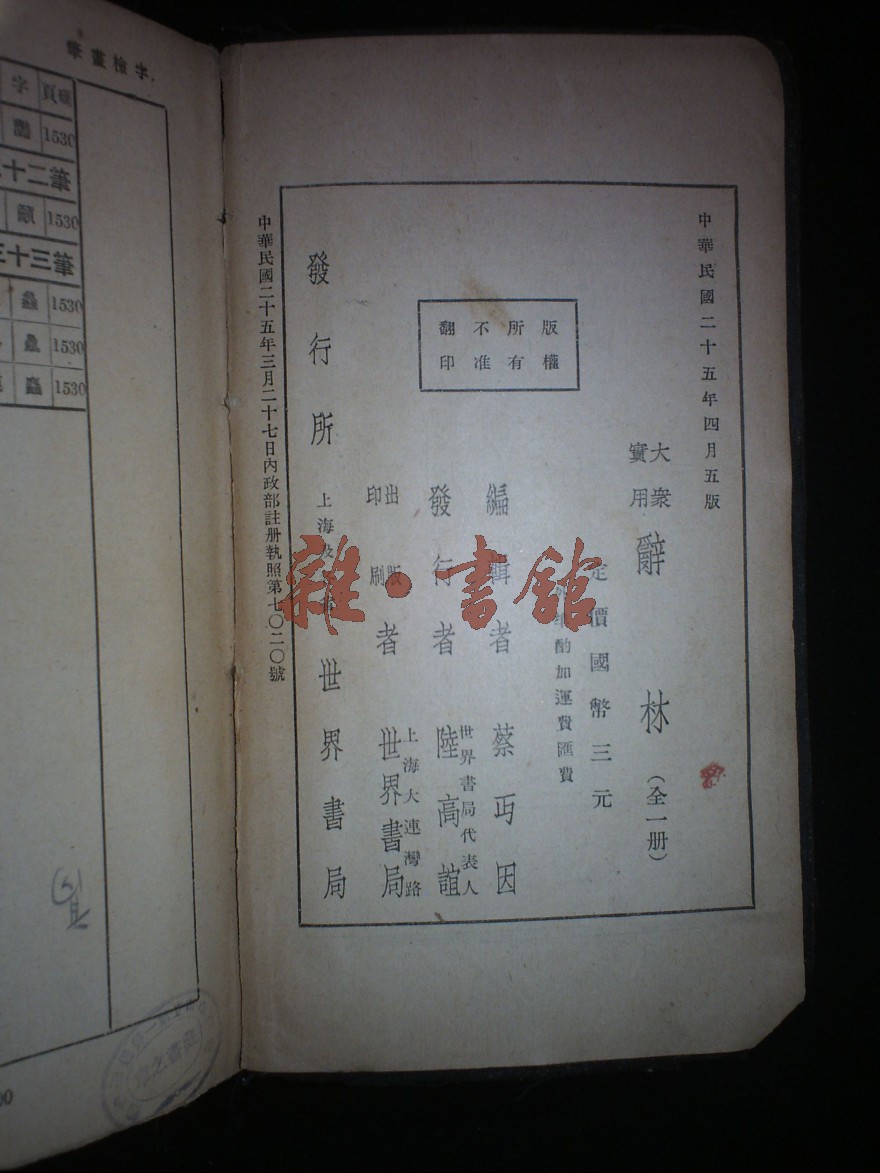 中華民國二十五年四月五版
大衆
實用
辭林(全一册)
定價國幣三元
酌加運費匯費
版權
所有
不准
翻印
編輯者 蔡丏因
發行者 世界書局代表人 陸高誼
出版
印刷
者 上海大連灣路 世界書局
發行所 上海 世界書局
中華民國二十五年三月二十七日內政部註册執照第七〇二〇號
雜·書館
筆畫檢字
字 頁碼
1530
十二筆
籲 1530
三十三筆
1530
1530
1530